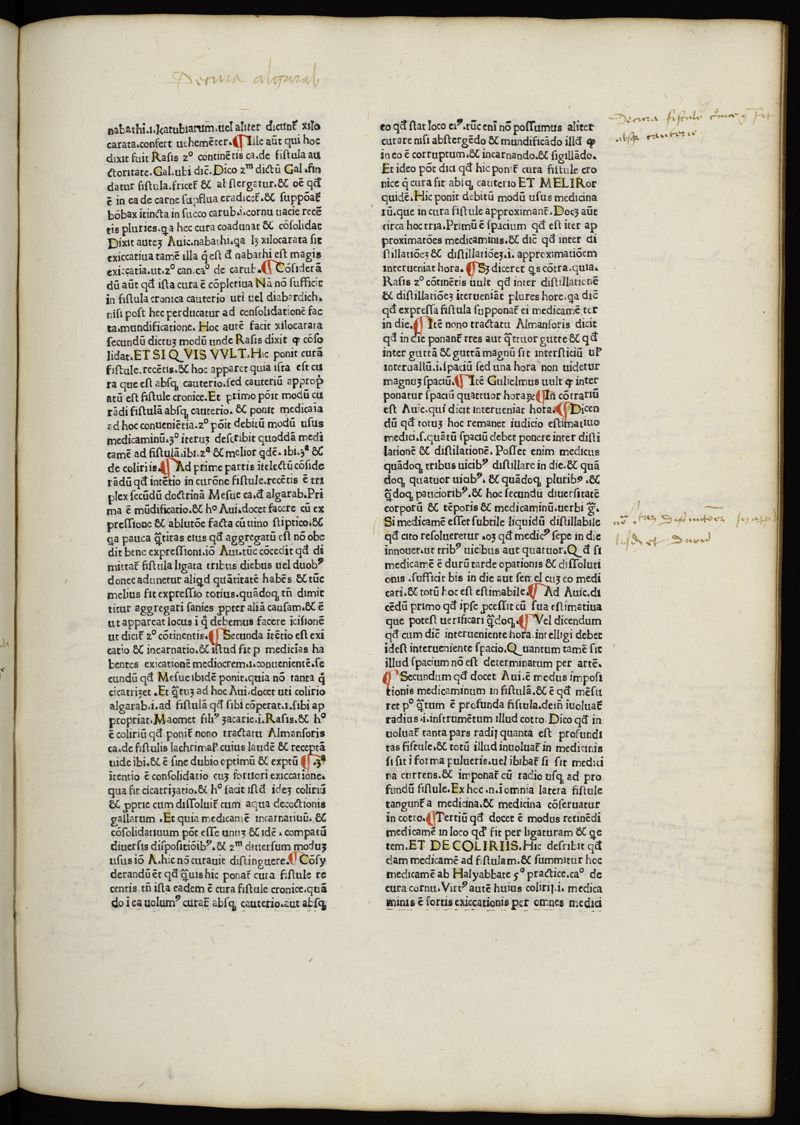 De cura algarab
nabathi.i.katubiarum.uel aliter dicunt̃ xilo
carata.confert uehemẽter.¶Ille aũt qui hoc
dixit fuit Rasis z° continẽtis ca.de fistula au
ctoritate.Gal.ubi diẽ.Dico zᵐ dictũ Gal.fin
datur fistula.fricet̃ & abstergatur.& oẽ qđ
ẽ in ea de carne supflua eradicet̃.& suppõat̃
bõbax itincta in succo carub.i.cornu uacie recẽ
tis pluries.qa hec cura coadunat & cõsolidat
Dixit autez Auic.nabathi.qa lz xilocarata sit
exiccatiua tamẽ illa q̃ est đ nabathi est magis
exiccatia.ut.z° can.ca° de carub.¶Cõsiderã
dũ aũt qđ ista cura ẽ cõpletiua Nã nõ sufficit
in fistula cronica cauterio uti uel diabardich.
nisi post hec perducatur ad consolidationẽ fac
ta.mundificatione. Hoc autẽ facit xilocarata
secundũ dictuz modũ unde Rasis dixit ꝙ cõso
lidat.ET SI QVIS VVLT.Hic ponit curã
fistule.recẽtis.& hoc apparet quia ista est cu
ra que est absq̃ cauterio.sed cauteriũ approp̃
atũ est fistule cronice.Et primo põit modũ cu
rãdi fistulã absq̃ cauterio. & ponit medicaĩa
ad hoc conueniẽtia.z° põit debitũ modũ usus
medicaminũ.3° iteruz describit quoddã medi
camẽ ad fistulã.ibi.zª & melior qdẽ.ibi.3ª &
de coliriis.¶Ad prime partis ĩtelectũ cõside
rãdũ qđ intẽtio in curõne fistule.recẽtis ẽ tri
plex secũdũ doctrinã Mesue ca.đ algarab.Pri
ma ẽ mũdificatio.& h° Aui.docet facere cũ ex
pressione & ablutõe facta cũ uino stiptico.&
qa pauca q̃titas eius qđ aggregatũ est nõ obe
dit bene expressioni.iõ Aui.tũc cõcedit qđ di
mittat̃ fistula ligata tribus diebus uel duobꝰ
donec adunetur aliqđ quãtitatẽ habẽs & tũc
melius fit expressio totius.quãdoq̃ tñ dimit
titur aggregari sanies ppter aliã causam.& ẽ
ut appareat locus i q̃ debemus facere icisionẽ
ut dicit̃ z° cõtinentis.¶Secunda ĩtẽtio est exi
catio & incarnatio.& istud fit p medicĩas ha
bentes exicationẽ mediocrem.i.conuenientẽ.se
cundũ qđ Mesue ibidẽ ponit.quia nõ tanta q̃
cicatrizet .Et q̃tuz ad hoc Aui.docet uti colirio
algarab.i.ad fistulã qđ sibi cõperat.i.sibi ap
propriat.Maomet filiꝰ zacarie.i.Rasis.& h°
ẽ coliriũ qđ ponit̃ nono tractatu Almansoris
ca.de fistulis lachrimaꝝ cuius laudẽ & receptã
uide ibi.& ẽ sine dubio optimũ & exptũ ¶.3ª
ĩtentio ẽ consolidatio cuz fortiori exiccatione.
qua fit cicatrizatio.& h° facit istđ idez coliriũ
& pprie cum dissoluit̃ cum aqua decoctionis
gallarum .Et quia medicamẽ incarnatiuũ. &
cõsolidatiuum põt esse unuz & idẽ . compatũ
diuersis dispositiõibꝰ. & zᵐ diuersum moduz
usus iõ A.hic nõ curauit distinguere.¶Cõsy
derandũ ẽt qđ q̃uis hic ponat̃ cura fistule re
centis tñ ista eadem ẽ cura fistule cronice.quã
do i ea uolumꝰ curat̃ absq̃ cauterio.aut absq̃
eo qđ stat loco eiꝰ.tũc enĩ nõ possumus aliter
curare nisi abstergẽdo & mundificãdo illđ ꝙ
in eo ẽ corruptum.& incarnando.& sigillãdo.
Et ideo põt dici qđ hic ponit̃ cura fistule cro
nice q̃ cura fit absq̃ cauterio ET MELIRor
quidẽ.Hic ponit debitũ modũ usus medicina
rũ.que in cura fistule approximant̃.Docz aũt
circa hoc tria.Primũ ẽ spacium qđ est iter ap
proximatões medicaminis.& diẽ qđ inter di
stillatiõez & distillatiõez.i. approximatiõem
interueniat hora.¶Sz diceret qs cõtra.quia.
Rasis z° cõtinẽtis uult qđ inter distillationẽ
& distillatiõez iterueniãt plures hore.qa diẽ
qđ expressa fistula supponat̃ ei medicamẽ.ter
in die.¶Itẽ nono tractatu Almansoris dicit
qđ in die ponant̃ tres aut q̃ttuor gutte & qđ
inter guttã & guttã magnũ sit interstitiũ ul̃
interuallũ.i.spaciũ sed una hora non uidetur
magnuz spaciũ.¶Itẽ Gulielmus uult ꝙ inter
ponatur spaciũ quatuor horaꝝ¶In cõtrariũ
est Auic.qui dicit interueniar hora.¶Dicen
dũ qđ totuz hoc remanet iudicio estimatiuo
medici.s.quãtũ spaciũ debet ponere inter disti
lationẽ & distilationẽ. Posset enim medicus
quãdoq̃ tribus uicibꝰ distillare in die.& quã
doq̃ quatuor uicibꝰ. & quãdoq̃ pluribꝰ .&
q̃doq̃ paucioribꝰ.& hoc secundũ diuersitatẽ
corporũ & tẽporis & medicaminũ.uerbi g̃.
Si medicamẽ esset subtile liquidũ distillabile
qđ cito resolueretur .oz qđ medicꝰ sepe in die
innouet.ut tribꝰ uicibus aut quatuor.Qđ si
medicamẽ ẽ durũ tarde opationis & dissoluti
onis .sufficit bis in die aut semel cuz eo medi
cari.& totũ hoc est estimabile.¶Ad Auic.di
cẽdũ primo qđ ipse pcessit cũ sua estimatiua
que potest uerificari q̃doq̃.¶Vel dicendum
qđ cum diẽ interueniente hora.intelligi debet
idest interueniente spacio.Quantum tamẽ sit
illud spacium nõ est determinatum per artẽ.
¶Secundum qđ docet Aui.ẽ modus imposi
tionis medicaminum in fistulã.& ẽ qđ mẽsu
ret p° q̃tum ẽ profunda fistula.deiñ iuoluat̃
radius .i.instrumẽtum illud cotto .Dico qđ in
uoluat̃ tanta pars radij quanta est profundi
tas fistule.& totũ illud inuoluat̃ in medicinis
si sit i forma pulueris.uel ibibat̃ si sit medici
na currens.& imponat̃ cũ radio usq̃ ad pro
fundũ fistule.Ex hoc.n.i omnia latera fistule
tangunt̃ a medicina.& medicina cõseruatur
in cotto.¶Tertiũ qđ docet ẽ modus retinẽdi
medicamẽ in loco qđ fit per ligaturam & q̃e
tem.ET DE COLIRIIS.Hic describit qđ
dam medicamẽ ad fistulam.& summitur hoc
medicamẽ ab Halyabbate 5° practice.ca° de
cura cornu.Virtꝰ autẽ huius colirij.i. medica
minis ẽ fortis exiccationis per omnes medici
De cura fistule
absq cauterio